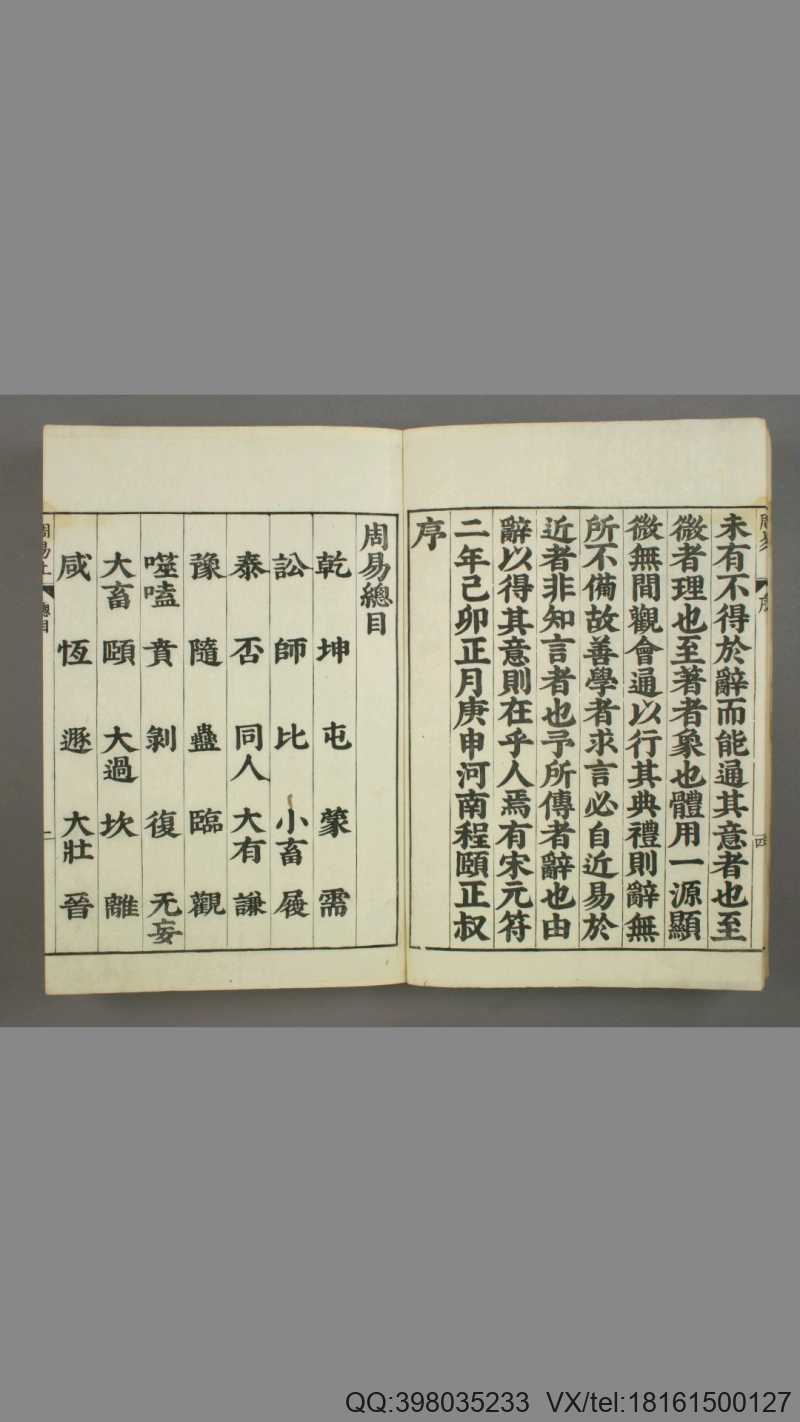 未有不得於辭而能通其意者也至
微者理也至著者象也體用一源顯
微無間觀會通以行其典禮則辭無
所不備故善學者求言必自近易於
近者非知言者也予所傳者辭也由
辭以得其意則在乎人焉有宋元符
二年己卯正月庚申河南程頤正叔
序
周易總目
乾 坤 屯 蒙 需
訟 師 比 小畜 履
泰 否 同人 大有 謙
豫 隨 蠱 臨 觀
噬嗑 賁 剝 復 无妄
大畜 頤 大過 坎 離
咸 恆 遯 大壯 晉
QQ:398035233 VX/tel:18161500127